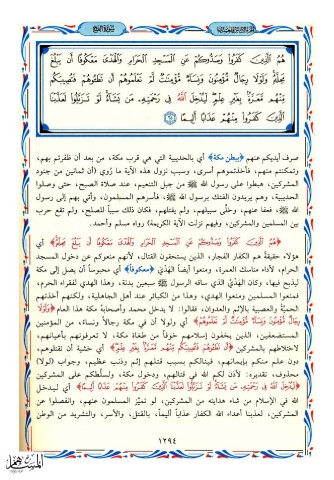 سورة الفتح
هُمُ ٱلَّذِينَ كَفَرُوا۟ وَصَدُّوكُمْ عَنِ ٱلْمَسْجِدِ ٱلْحَرَامِ وَٱلْهَدْىَ مَعْكُوفًا أَن يَبْلُغَ
مَحِلَّهُۥ ۚ وَلَوْلَا رِجَالٌ مُّؤْمِنُونَ وَنِسَآءٌ مُّؤْمِنَـٰتٌ لَّمْ تَعْلَمُوهُمْ أَن تَطَـُٔوهُمْ فَتُصِيبَكُم
مِّنْهُم مَّعَرَّةٌۢ بِغَيْرِ عِلْمٍ ۖ لِّيُدْخِلَ ٱللَّهُ فِى رَحْمَتِهِۦ مَن يَشَآءُ ۚ لَوْ تَزَيَّلُوا۟ لَعَذَّبْنَا
ٱلَّذِينَ كَفَرُوا۟ مِنْهُمْ عَذَابًا أَلِيمًا
صرف أيديكم عنهم ﴿ببطن مكة﴾ أي بالحديبية التي هي قرب مكة، من بعد أن ظفرتم بهم،
وتمكنتم منهم، فأخذتموهم أسرى، وسبب نزول هذه الآية ما رُوي (أن ثمانين من جنود
المشركين، هبطوا على رسول الله ﷺ من جبل التنعيم، عند صلاة الصبح، حتى وصلوا
الحديبية، وهم يريدون الفتك برسول الله ﷺ، فأسرهم المسلمون، وأتي بهم إلى رسول
الله ﷺ، فعفا عنهم، وخلَّى سبيلهم، ولم يقتلهم، فكان ذلك سبباً للصلح، ولم تقع حرب
بين المسلمين والمشركين، وفيهم نزلت الآية الكريمة) رواه مسلم وأحمد.
﴿هُمُ الَّذِينَ كَفَرُوا وَصَدُّوكُمْ عَنِ الْمَسْجِدِ الْحَرَامِ وَالْهَدْيَ مَعْكُوفًا أَن يَبْلُغَ مَحِلَّهُ﴾ أي
هؤلاء حقيقةً هم الكفار الفجار، الذين يستحقون القتال، لأنهم منعوكم عن دخول المسجد
الحرام، لأداء مناسك العمرة، ومنعوا أيضاً الهَدْيَ ﴿معكوفاً﴾ أي محبوساً أن يصل إلى مكة
ليذبح فيها، وكان الهَدْيُ الذي ساقه الرسول ﷺ سبعين بدنة، وهذا الهدي لفقراء الحرم،
فمنعوا المسلمين ومنعوا الهدي، وهذا من الكبائر عند أهل الجاهلية، ولكنهم أخذتهم
الحميَّة والعصبية بالإثم والعدوان، فقالوا: لا يدخل محمد وأصحابه مكة هذا العام ﴿وَلَوْلَا
رِجَالٌ مُّؤْمِنُونَ وَنِسَاءٌ مُّؤْمِنَاتٌ لَّمْ تَعْلَمُوهُمْ﴾ أي ولولا أن في مكة رجالاً ونساءً، من المؤمنين
المستضعفين، الذين يخفون إسلامهم خوفاً من طغاة مكة، لا تعرفونهم بأعيانهم،
لاختلاطهم بالمشركين ﴿أَن تَطَئُوهُمْ فَتُصِيبَكُم مِّنْهُم مَّعَرَّةٌ بِغَيْرِ عِلْمٍ﴾ أي خشية أن تقتلوهم،
دون علم منكم بإيمانهم، فينالكم بسبب قتلهم إثم وعيب عظيم، وجواب (لولا)
محذوف، تقديره: لأذن لكم الله في قتالهم، ودخول مكة، ولسلَّطكم على المشركين
﴿لِّيُدْخِلَ اللَّهُ فِي رَحْمَتِهِ مَن يَشَاءُ لَوْ تَزَيَّلُوا لَعَذَّبْنَا الَّذِينَ كَفَرُوا مِنْهُمْ عَذَابًا أَلِيمًا﴾ أي ليدخل
في الإسلام من شاء هدايته من المشركين، لو تميَّز المسلمون عنهم، وانفصلوا عن
المشركين، لعذبنا أعداء الله الكفار عذاباً أليماً، بالقتل، والأسر، والتشريد من الوطن
١٢٩٤